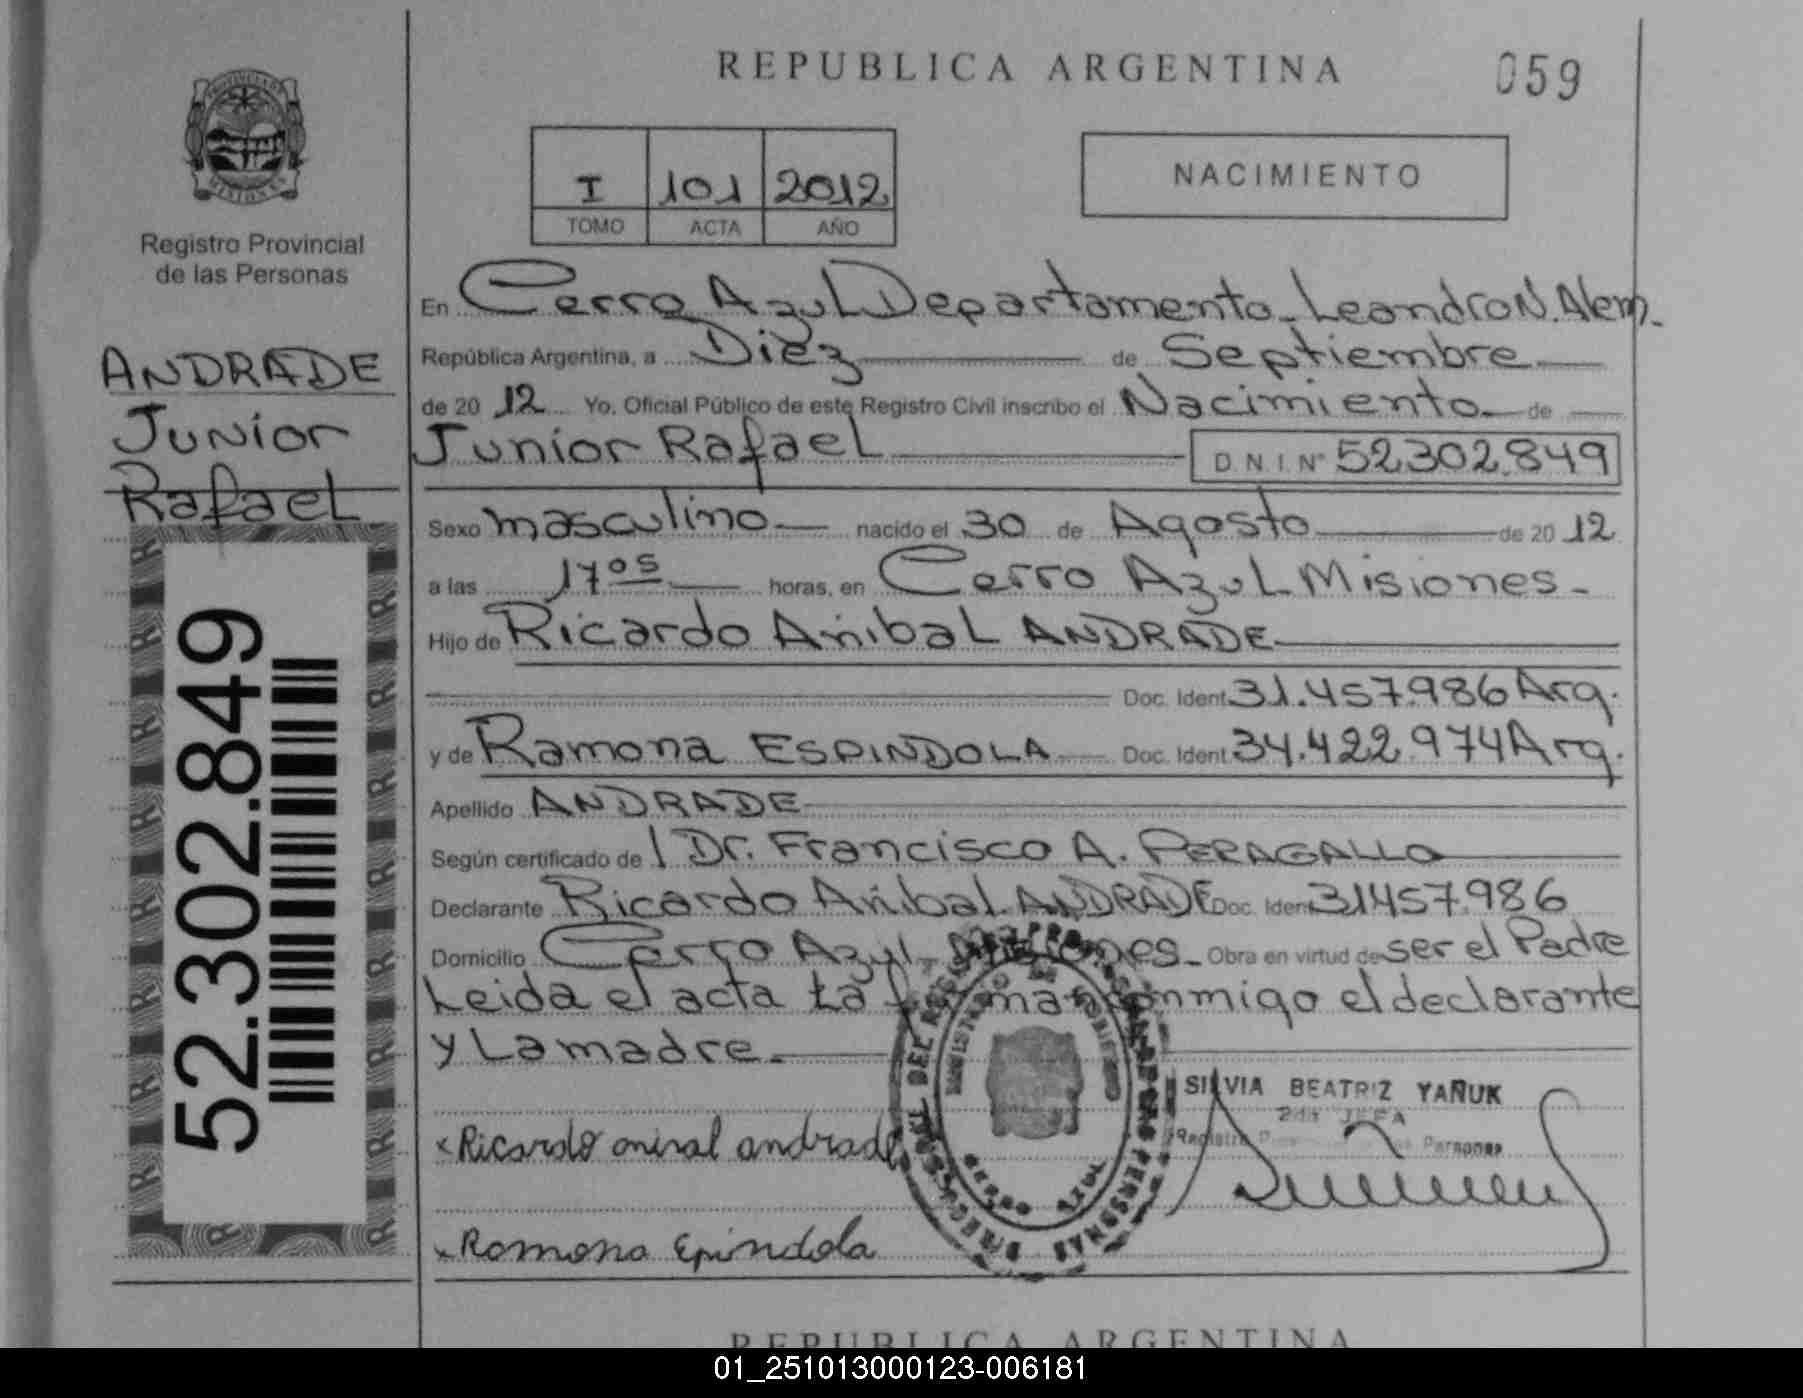 REPUBLICA ARGENTINA
059
PROVINCIA DE
MISIONES
Registro Provincial
de las Personas
I 101 2012
TOMO ACTA AÑO
NACIMIENTO
ANDRADE
Junior
Rafael
52.302.849
En Cerro Azul Departamento Leandro N. Alem.
República Argentina, a Diez de Septiembre
de 2012 Yo, Oficial Público de este Registro Civil inscribo el Nacimiento de
Junior Rafael D.N.I. N° 52302849
Sexo masculino nacido el 30 de Agosto de 2012
a las 17 05 horas, en Cerro Azul Misiones-
Hijo de Ricardo Anibal ANDRADE
Doc. Ident. 31.457.986 Arg.
y de Ramona ESPINDOLA Doc. Ident. 34.422.974 Arg.
Apellido ANDRADE
Según certificado de / Dr. Francisco A. PERAGALLO
Declarante Ricardo Anibal ANDRADE Doc. Ident. 31457.986
Domicilio Cerro Azul, Misiones- Obra en virtud de ser el Padre
Leida el acta la firman conmigo el declarante
y la madre.
SILVIA BEATRIZ YAÑUK
2da JEFA
Registro Personas
Ricardo anival andrade
Romona Epindola
CERRO AZUL
REPUBLICA ARGENTINA
01_251013000123-006181